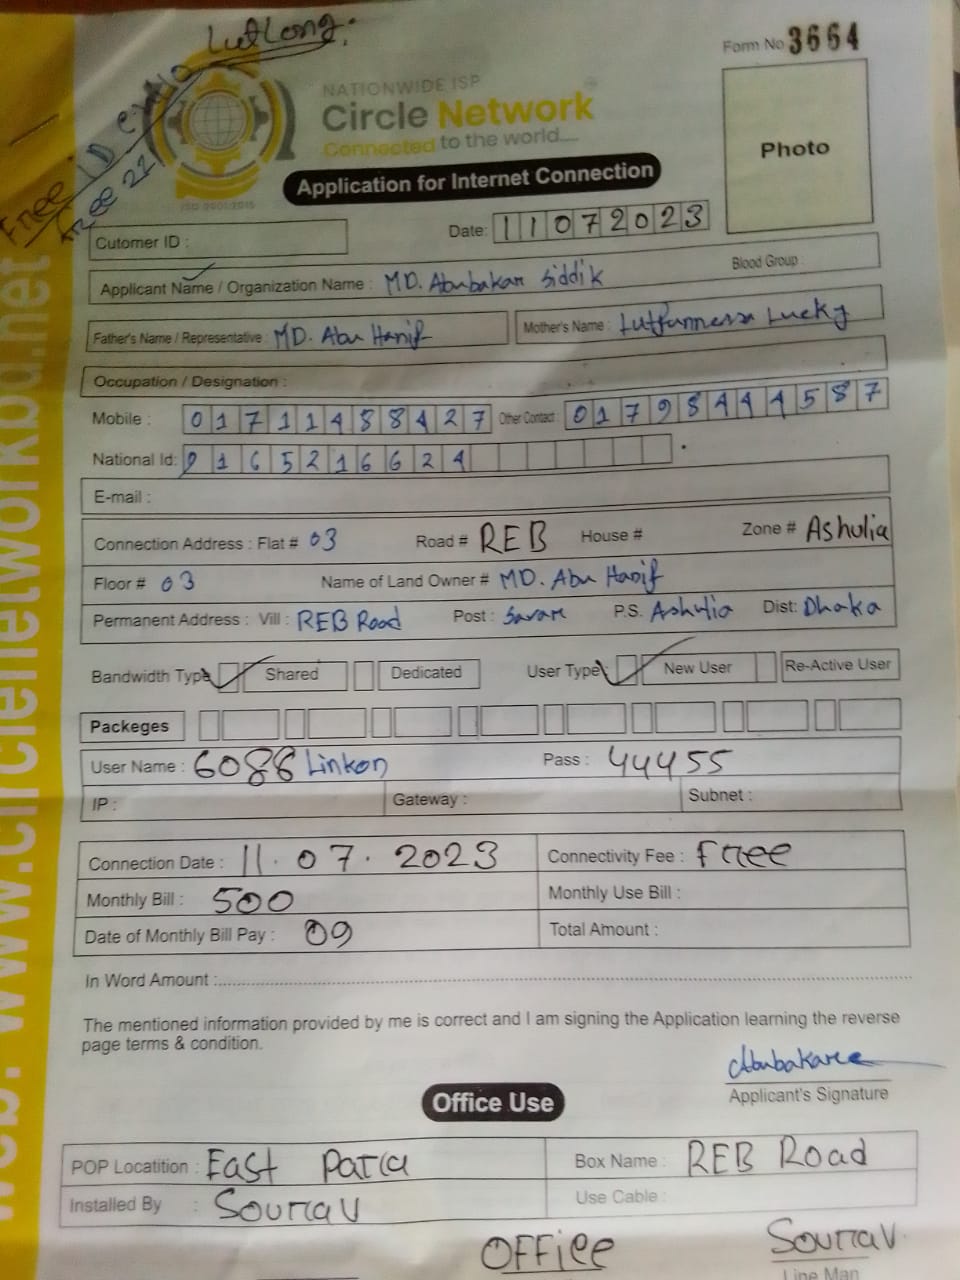 LutLong.
Form No 3664
Free ID
Free 22
NATIONWIDE ISP
Circle Network
Connected to the world....
ISO 9001:2015
Photo
Application for Internet Connection
Cutomer ID :
Date: 11072023
Applicant Name / Organization Name : MD. Abubakar Siddik
Blood Group :
Father's Name / Representative : MD. Abu Hanif
Mother's Name : Lutfunnessa Lucky
Occupation / Designation :
Mobile : 01711488427
Other Contact : 01798444587
National Id: 9165216624
E-mail :
Connection Address : Flat # 03 Road # REB House # Zone # Ashulia
Floor # 03 Name of Land Owner # MD. Abu Hanif
Permanent Address : Vill : REB Road Post : Savar P.S. Ashulia Dist: Dhaka
Bandwidth Type Shared Dedicated User Type New User Re-Active User
Packeges
User Name : 6088 Linkon Pass : 44455
IP : Gateway : Subnet :
Connection Date : 11.07.2023 Connectivity Fee : Free
Monthly Bill : 500 Monthly Use Bill :
Date of Monthly Bill Pay : 09 Total Amount :
In Word Amount :
The mentioned information provided by me is correct and I am signing the Application learning the reverse
page terms & condition.
Abubakar
Applicant's Signature
Office Use
POP Locatition : East Para Box Name : REB Road
Installed By : Sourav Use Cable :
OFFice
Sourav
Line Man
web: www.circlenetworkbd.net